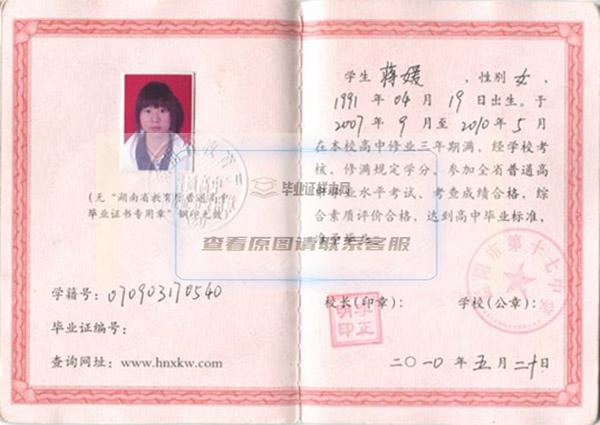 (无“湖南省教育厅普通高中
毕业证书专用章”钢印无效)
学籍号：070903170540
毕业证编号：
查询网址：www.hnxkw.com
学生 蒋媛 ，性别 女 ，
1991 年 04 月 19 日出生。于
2007 年 9 月至 2010 年 5 月
在本校高中修业三年期满，经学校考
核，修满规定学分，参加全省普通高
中毕业水平考试、考查成绩合格，综
合素质评价合格，达到高中毕业标准，
准予毕业。
校长(印章)：
学校(公章)：
市第十七中学
李正
明印
二〇一〇 年 五 月 二十 日
毕业证样本网
查看原图请联系客服